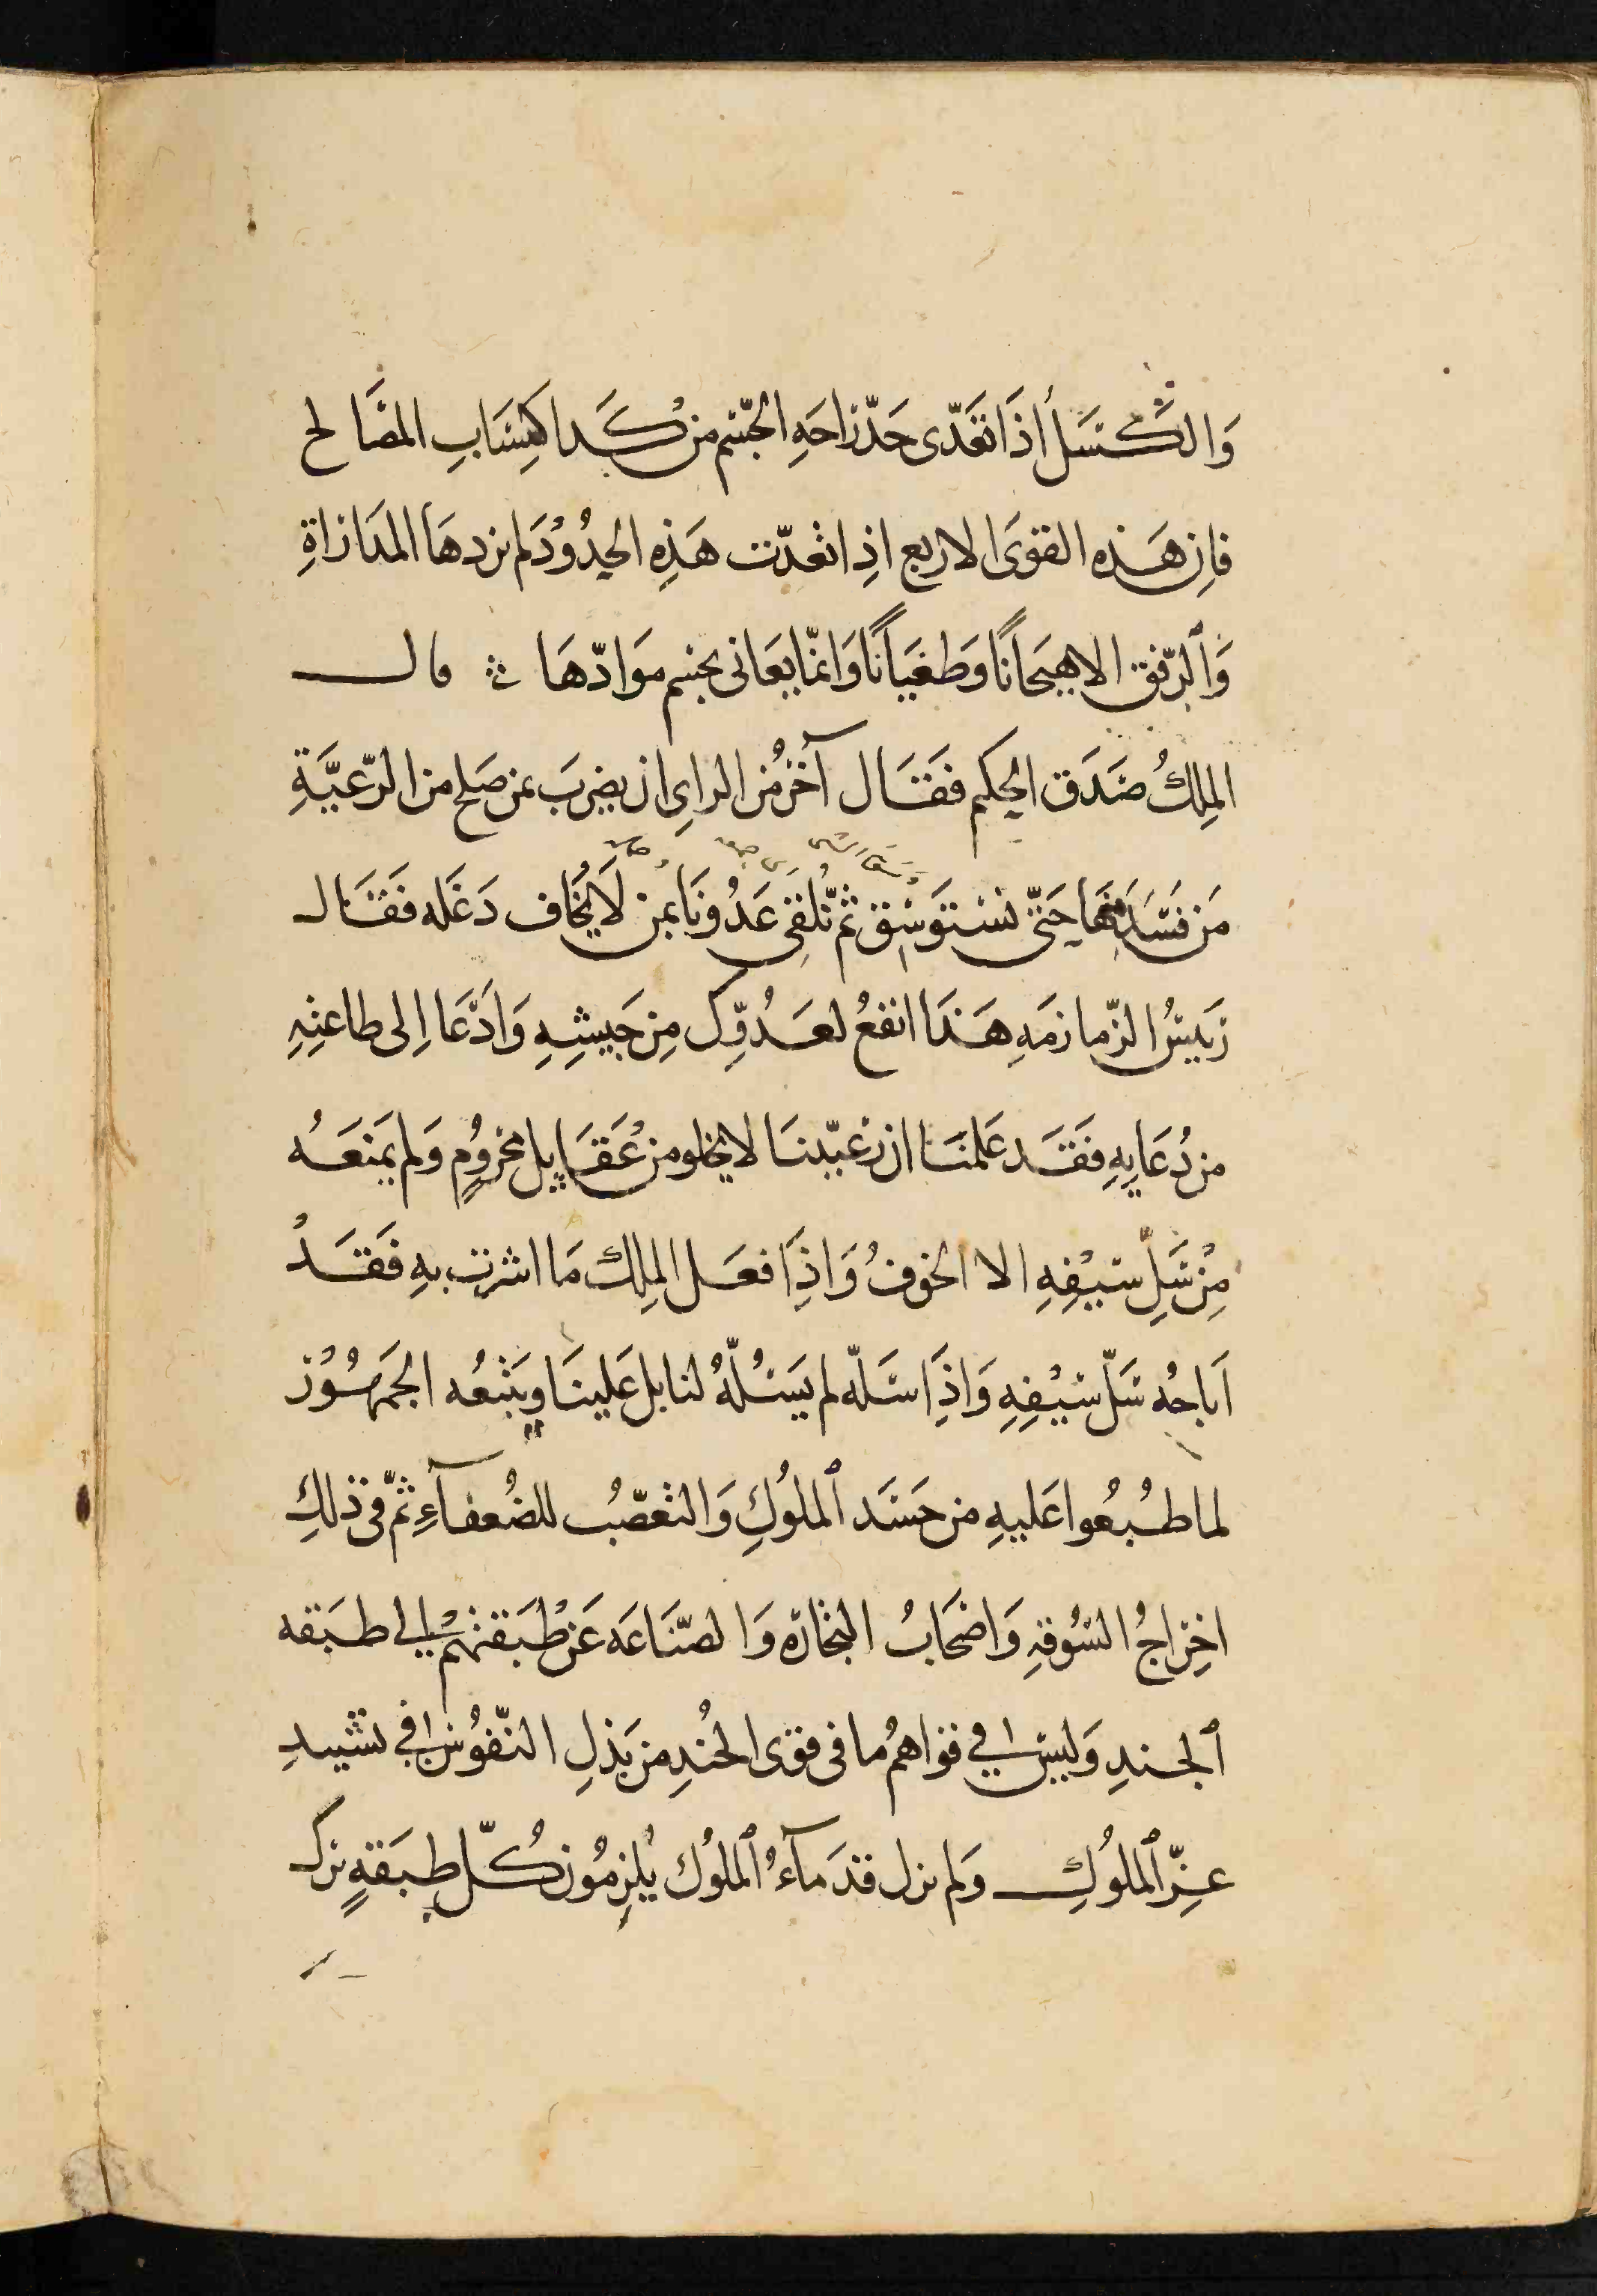 وَالكَسَلُ إذَا تَعَدّى حَدّ رَاحَةِ الجِسْم مِنْ كَدِ اكتِسَابِ المصَالح
فإن هَذه القوَى الاربع اذِا تعَدّت هَذِهِ الحدُوْدَ لم يزدهَا المدَارَاةِ
وَالرّفق الا هيجَانًا وَطغيَانًا وَانمّا يعَانى بحسْم موَادّهَا قال
الملِكُ صَدَق الحكم فقَال آخرُ مُن الراىِ ان يضرِبَ بمن صَلح من الرّعيَّةِ
مَن فسَدَ منهَا حَتّى تستَوسْق ثمّ نُلقى عَدُونَا بمن لَا يُخَاف دَغَله فَقَال
رَئيسُ الزّمازمَهِ هَذَا انفعُ لعَدُوِّك مِن جَيشِهِ وَادَّعَا اِلى طاعتِهِ
من دُعَايهِ فقَد عَلمنَا ان رعيّتنَا لا يخلو من عُقَايلِ محروُمٍ وَلم يمنَعهُ
مِنْ سَلِّ سَيْفِهِ الا الخوفُ وَاذِا فعَل الملِك مَا اشرت بهِ فقَدْ
اَباحُه سَلّ سَيْفِهِ وَاذِا سَلّه لم يَسُلّهُ لنا بل عَلينَا ويتبعُه الجَمهُوُر
لما طُبعُوا عَليهِ من حَسَد الملوُكِ وَالتعصّبُ للضُعفآءِ ثمّ في ذلكِ
اخِرَاجُ السُوقهِ وَاصْحَابُ التجارَه وَالصّنَاعَه عَنْ طبَقتهمْ الى طبَقه
الجندِ وَليسَ في قواهمُ ما فى قوَى الجُندِ من بَذلِ النّفوُسِ في تشييدِ
عزّ الملوُكِ وَلم يزل قدَمآءُ الملوُك يُلزِمُون كُلّ طبَقهٍ ترك